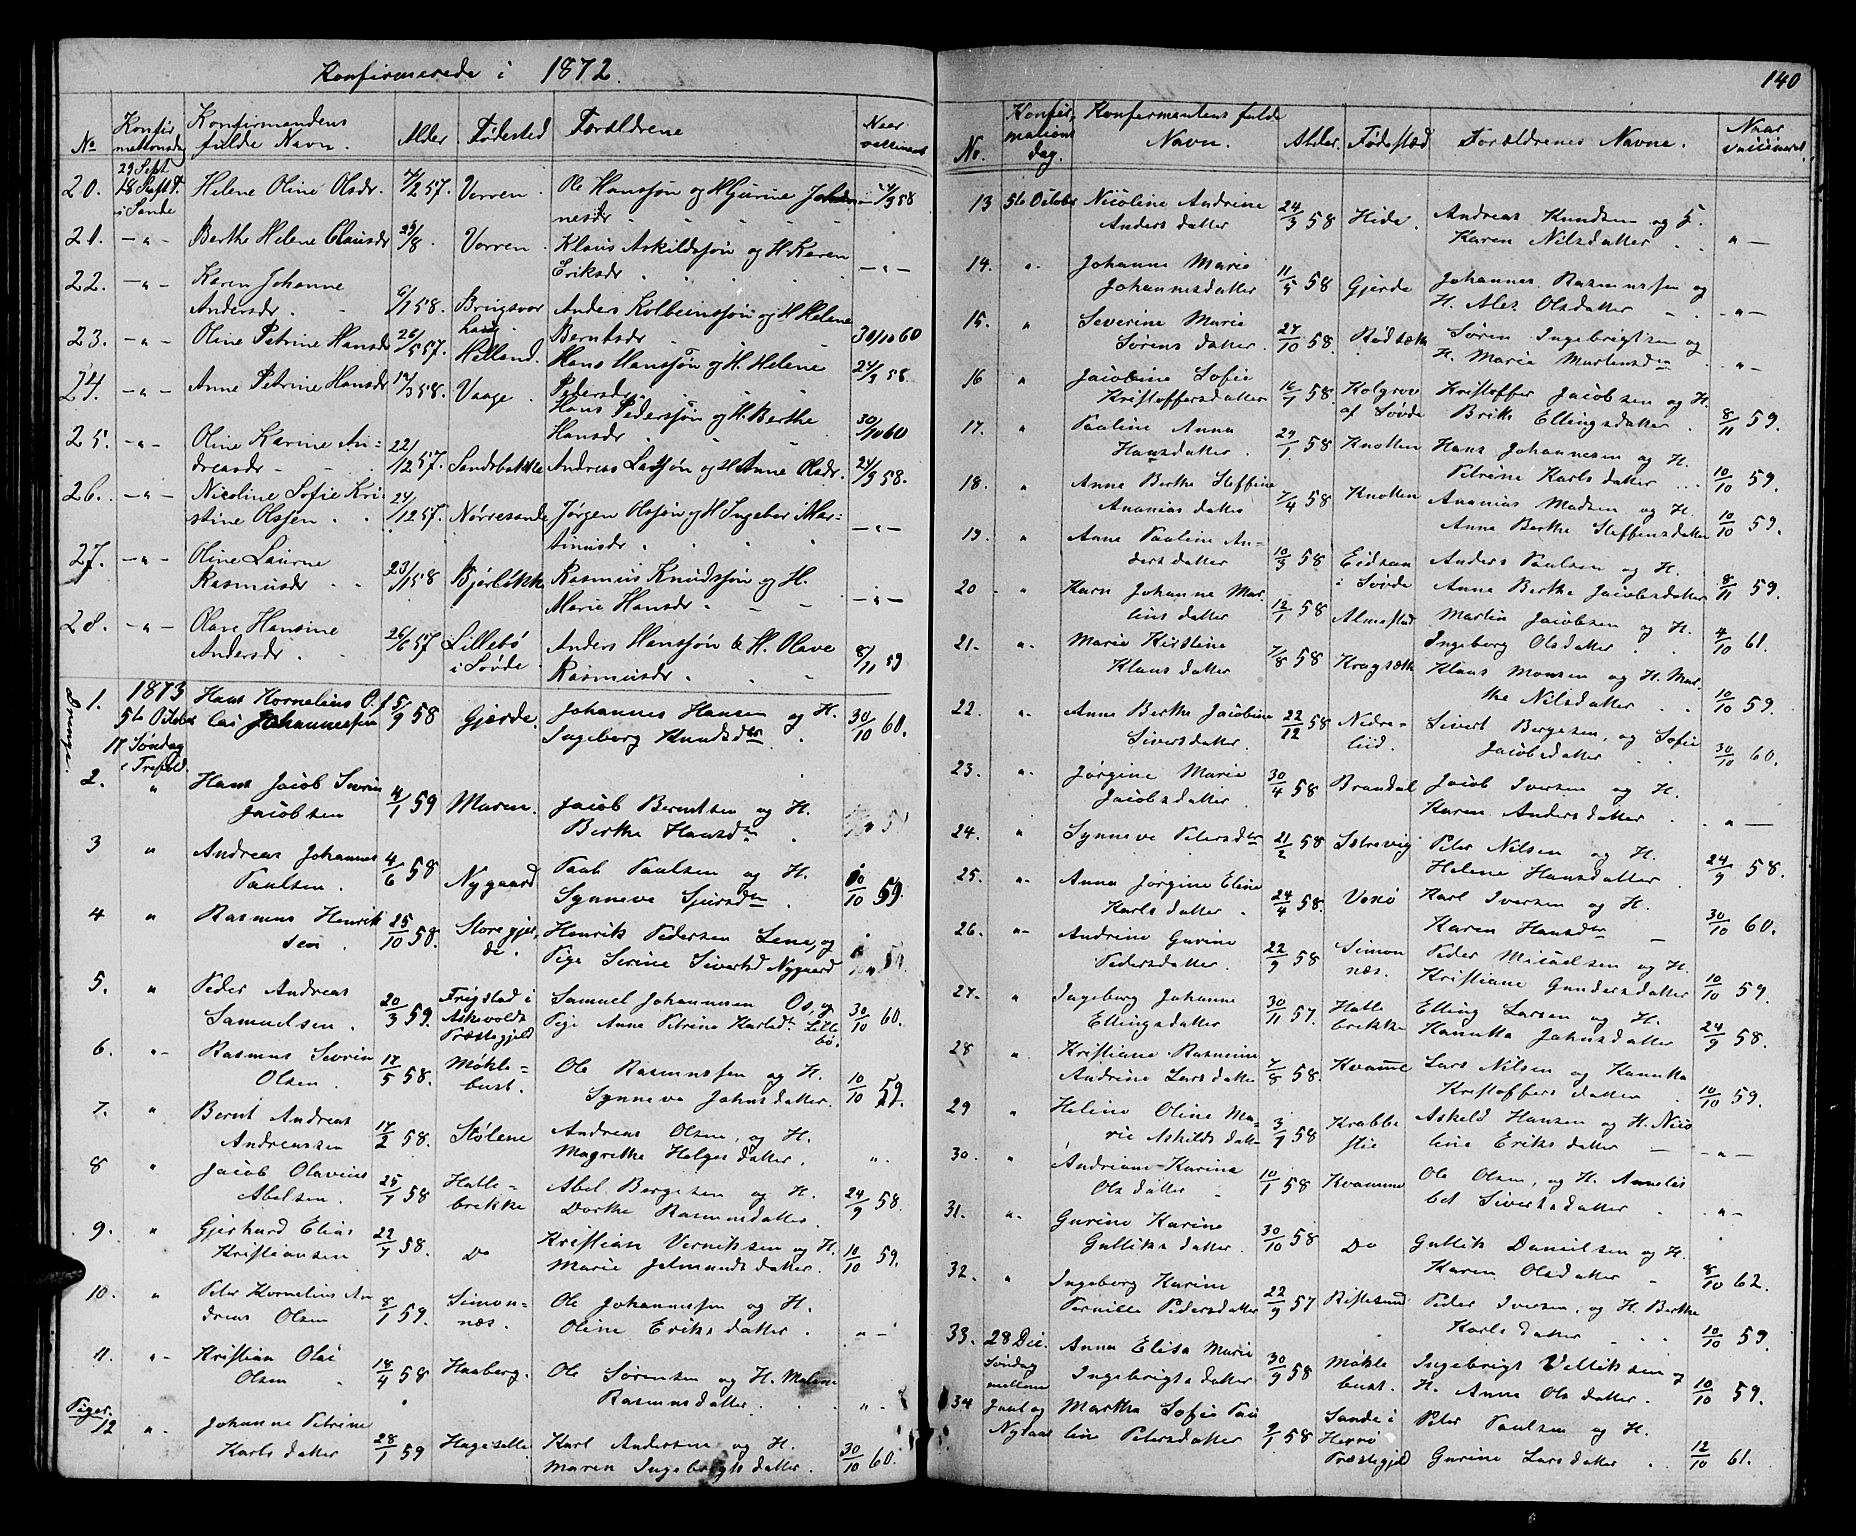 Konfirmerede i 1872.
No Konfirmationsdag Konfirmandens fulde Navn. Alder Fødested Forældrene Naar vaccineret
29 Sept
20. 18 S. e. Tref. i Sande Helene Oline Olsdr. 4/2 57. Vorren. Ole Hanssøn og H Gjurine Johannesdr 24/9 58
21. —"— Berthe Helene Clausdr 23/8. Vorren. Klaus Askildssøn og H. Karen Eriksdr —"—
22. —"— Karen Johanne Andersdr. 6/1 58. Bringsvor Anders Kolbeinssøn og H Helene Berntsdr 30/10 60
23. —"— Oline Petrine Hansdr 26/5 57. Helland. Hans Hanssøn og H. Helene Pedersdr. 24/9 58.
24. —"— Anne Petrine Hansdr 14/3 58. Vaage. Hans Pederssøn og H. Berthe Hansdr. 30/10 60
25. —"— Oline Karine Andreasdr 22/12 57. Sandsbakke Andreas Larssøn og H Anne Olsdr. 24/9 58.
26. —"— Nicoline Sofie Kristine Olssen. 24/12 57. Nørresande Jørgen Olssøn og H Ingebor Martinusdr. —"—
27. —"— Oline Laurne Rasmusdr. 23/1 58 Bjørløkke Rasmus Knudssøn og H. Marie Hansdr. —"—
28. —"— Olave Hansine Andersdr. 26/6 57 Lillebø i Søvde. Anders Hanssøn & H. Olave Rasmusdr. 8/11 59
Drenge.
1873
1. 5te Octobr 17 Søndag e Trefold. Hans Kornelius Olai Johannessen 5/9 58 Gjerde. Johannes Hansen og H. Ingeborg Knudsdtr 30/10 60.
2. " Hans Jacob Sevrin Jacobsen 4/1 59 Maren. Jacob Berntsen og H. Berthe Hansdtr. " 59
3 " Andreas Johannes Paulsen. 4/6 58 Nygaard Paul Paulsen og H. Synneve Sjursdtr. 10/10 59.
4 " Rasmus Henriksen. 25/10 58. Storegjerde. Henrik Pedersen Lene, og Pige Serine Sivertsd Nygaard
5. " Peder Andreas Samuelsen. 20/3 59. Frigstad i Askevolds Præstegjeld Samuel Johannessen Os, og Pige Anne Petrine Karlsdtr Lillebø. 30/10 60.
6. "- Rasmus Sevrin Olsen. 17/5 58. Møklebust. Ole Rasmussen og H. Synneva Johnsdatter. 10/10 59.
7. " Bernt Andreas Andreassen 17/2 58. Stølene Andreas Olsen, og H. Magrethe Helgesdatter. ".
8 " Jacob Olavius Abelsen. 25/1 58 Hallebrekke Abel Bergesen og H. Dorthe Rasmusdatter. 24/9 58.
9. " Gjerhard Elias Kristiansen 22/1 58. Do Kristian Verniksen og H. Marie Jetmundsdatter. 10/10 59.
10. " Peter Kornelius Andreas Olsen 8/1 59. Simonnæs. Ole Johannessen og H. Oline Eriksdatter. "—
11. "- Kristian Olai Olsen 18/4 58 Haaberg. Ole Sørensen og H. Malene Rasmusdatter. ".
Piger.
12 ". Johanne Petrine Karlsdatter 28/1 59 Hageselle Karl Andersen og H. Maren Ingebrigtsdatter. 30/10 60.
140
No. Konfirmations dag. Konfirmantens fulde Navn. Alder. Fødested Forældrenes Navne. Naar vaccineret.
13 5te October Nicoline Andrine Andersdatter 24/3 58 Hide. Andreas Knudsen og H. Karen Nilsdatter. "—
14. ". Johanne Marie Johannesdatter 11/5 58 Gjerde Johannes Rasmussen og H. Ales Olsdatter —"—
15. " Severine Marie Sørensdatter. 27/10 58. Rødsæth Søren Ingebrigtsen og H. Marie Martinsdtr. —"—
16 " Jacobine Sofie Kristoffersdatter 16/1 58 Kolgrov af Søvde Kristoffer Jacobsen og H. Brite Ellingsdatter. 8/11 59.
17. " Pauline Anna Hansdatter. 29/1 58 Knotten Hans Johannesen og H. Petrine Karlsdatter 10/10 59.
18. " Anne Berthe Steffine Ananiasdatter 7/4 58 Knotten Ananias Madsen og H. Anne Berthe Steffensdatter 10/10 59.
19. " Anne Pauline Andersdatter 10/3 58 Eidsaa i Søvde Anders Paulsen og H. Anne Berthe Jacobsdatter 8/11 59.
20 " Karn Johanne Martinsdatter 12/1 58 Almestad Martin Jacobsen og H. Ingeborg Olsdatter 4/10 61.
21. ". Marie Kristine Klausdatter 7/8 58 Kragsæth Klaus Monsen og H. Marthe Nilsdatter 10/10 59.
22. ". Anne Berthe Jacobine Siversdatter. 22/12 58 Nedrelid. Sivert Bergesen, og Sofie Jacobsdatter 30/10 60.
23. ". Jørgine Marie Jacobsdatter. 30/4 58 Brandal Jacob Iversen og H. Karen Andersdatter. "—
24. " Synneve Petersdtr 21/2 58 Istrevig Peter Nilsen og H. Helene Hansdatter. 24/9 58.
25. ". Anna Jørgine Eline Karlsdatter. 24/4 58. Voxø Karl Iversen og H. Karen Hansdtr — 30/10 60.
26. "- Andrine Gurine Pedersdatter. 22/9 58 Simonnæs. Peder Micaelsen og H. Kristiane Gundersdatter 10/10 59.
27. " Ingeborg Johanne Ellingsdatter 30/11 57. Hallebrekke Elling Larsen og H. Hanukka Johnsdatter 24/9 58.
28 ". Kristiane Rasmine Andrine Larsdatter 7/8 58. Kvamme Lars Nilsen og Hanukka Kristoffersdatter 10/10 59.
29 " Heline Oline Marie Askildsdatter 3/1 58 Krabbestie Askeld Hansen og H. Nicoline Eriksdatter — —"—
30. " Andriane Karina Olsdatter 10/1 58 Kvamme Ole Olsen, og H. Annelisbet Siversdatter. "—
31. ". Gurine Karine Gulliksdatter. 30/10 58 Do Gullik Danielsen og H. Karen Olsdatter 8/10 62.
32. " Ingeborg Karine Pernille Pedersdatter 22/9 57 Riksesund Peder Iversen, og H. Berthe Karlsdatter 10/10 59.
33. 28 Dec. Søndag mellem Juul og Nytaar Anna Elisa Marie Ingebrigtsdatter 30/9 58 Møklebust. Ingebrigt Velliksen og H. Anne Olsdatter. 10/10 59.
34 Martha Sofie Pauline Petersdatter 9/1 58 Sande i Herrø Præstegjeld Peter Paulsen og H. Gurine Larsdatter 12/10 61.